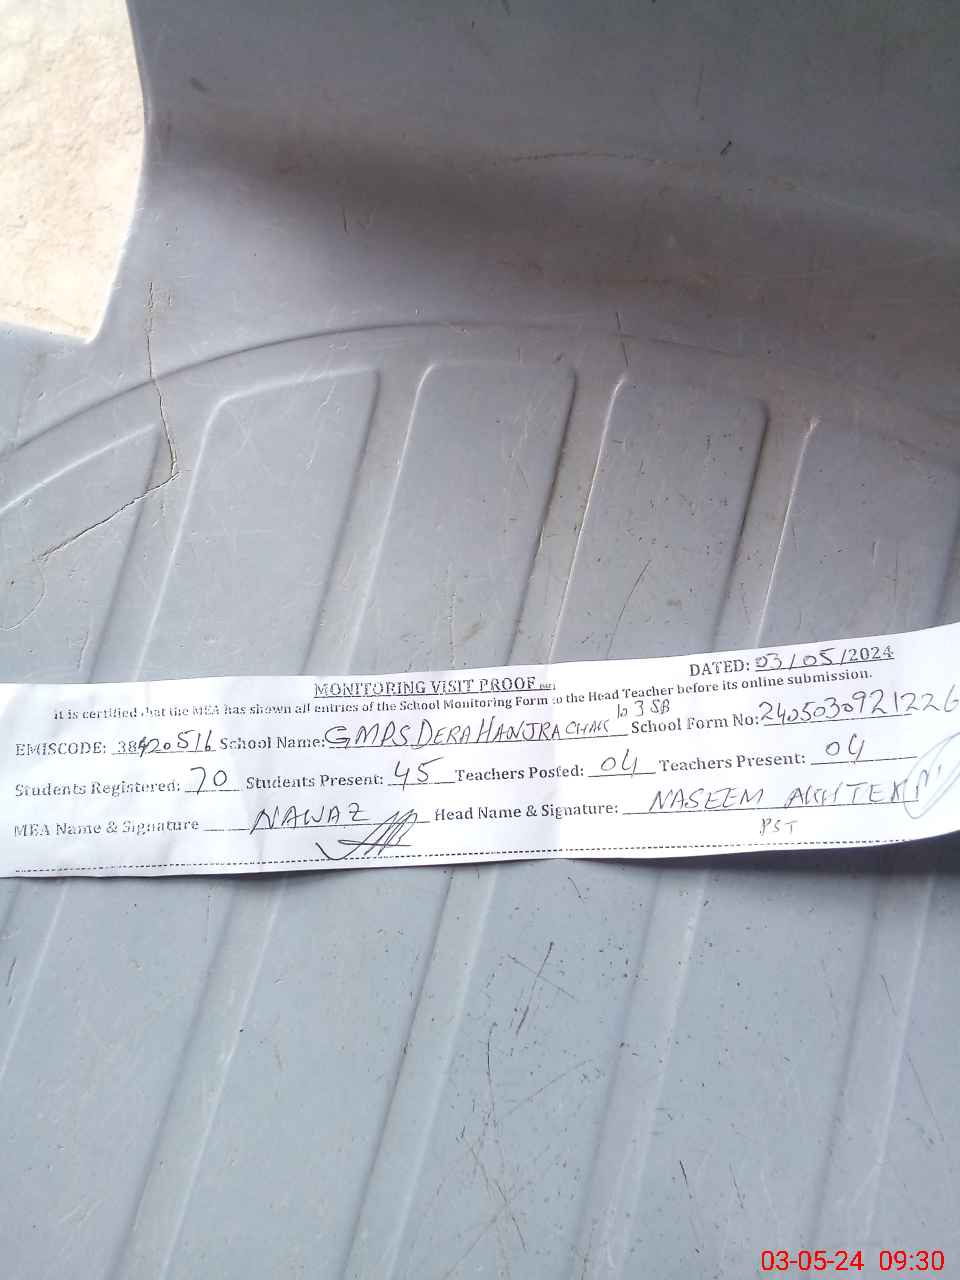 DATED: 03/05/2024
MONITORING VISIT PROOF
it is certified that the MEA has shown all entries of the School Monitoring Form to the Head Teacher before its online submission.
103 SB
EMISCODE: 38420516 School Name: GMPS DERA HANJRA CHAK School Form No: 2405030921226
Students Registered: 70 Students Present: 45 Teachers Posted: 04 Teachers Present: 04
MEA Name & Signature NAWAZ Head Name & Signature: NASEEM AKHTER
PST
03-05-24 09:30